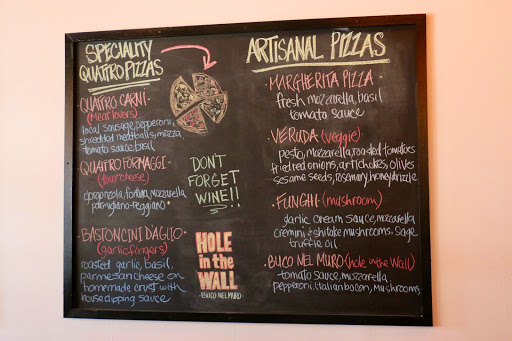 SPECIALITY
QUATTRO PIZZAS
QUATTRO CARNI
(Meat lovers)
local sausage, pepperoni,
shredded meatballs, mozza,
tomato sauce, basil
QUATTRO FORMAGGI
(four cheese)
gorgonzola, fontina, mozzarella
parmigiano-reggiano
BASTONCINI D'AGLIO
(garlic fingers)
roasted garlic, basil,
parmesan cheese on
homemade crust with
house dipping sauce
DON'T
FORGET
WINE!!
HOLE
in the
WALL
-BUCO NEL MURO-
ARTISANAL PIZZAS
· MARGHERITA PIZZA
fresh mozzarella, basil
tomato sauce
· VERUDA (veggie)
pesto, mozzarella, roasted tomatoes
fried red onions, artichokes, olives
sesame seeds, rosemary, honey drizzle
· FUNGHI (mushroom)
garlic cream sauce, mozzarella,
cremini & shitake mushrooms, sage
truffle oil
· BUCO NEL MURO (hole in the Wall)
tomato sauce, mozzarella,
pepperoni, Italian bacon, Mushrooms